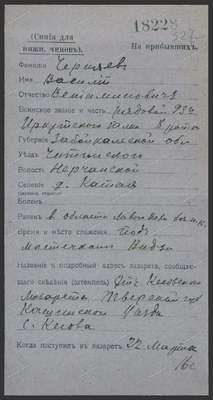 18228
327
(Синія для
нижн. чиновъ).
На прибавшихъ.
Фамилія Черняевъ
Имя Василій
Отчество Веніаминовичъ
Воинское званіе и часть рядовой 93
Иркутского полка 8 роты
Губернія Забайкальской обл.
Уѣздъ Читинскаго
Волость Нерчанской
Селеніе д. Катаев
Боленъ
Раненъ въ области лѣваго
Время и мѣсто сраженія подъ
мѣстечкомъ Видзы
Названіе и подробный адресъ лазарета, сообщаю-
щаго свѣдѣнія (штемпель) Отъ Кесовского
Лазарета Тверской губ
Кашинскаго уѣзда
с. Кесова
Когда поступилъ въ лазаретъ 22 Марта
16 г